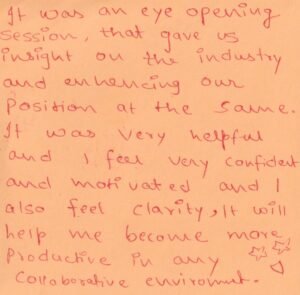 It was an eye opening
session, that gave us
insight on the industry
and enhancing our
position at the same.
It was very helpful
and I feel very confident
and motivated and I
also feel clarity, It will
help me become more
productive in any
collaborative enviromnt.